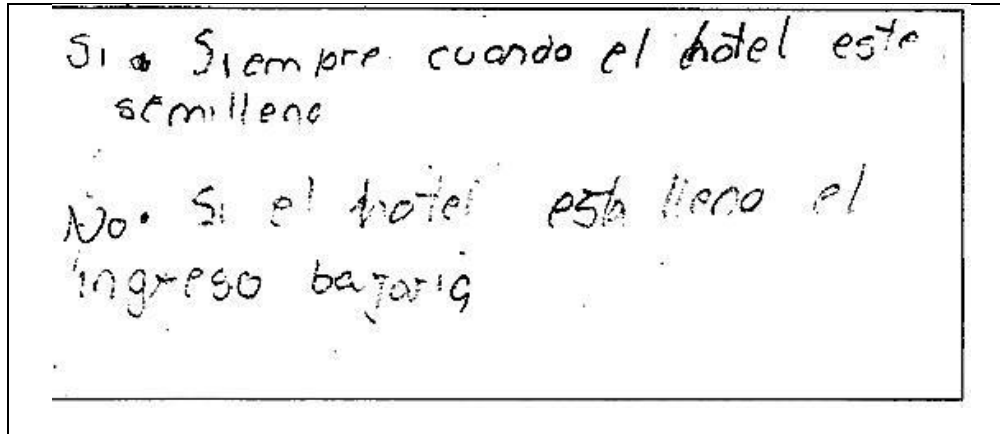 Si • Siempre cuando el hotel este
semilleno
No• Si el hotel esta lleno el
ingreso bajaria